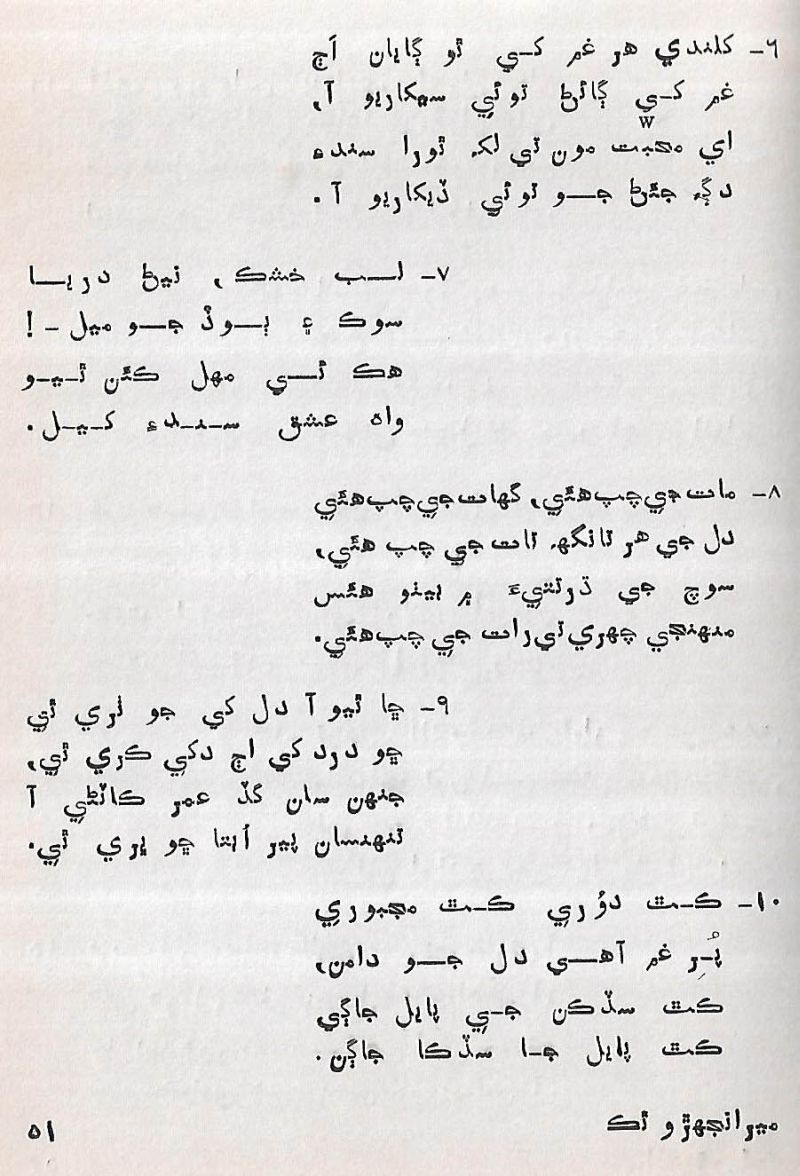 ٦- کلندي هر غم کي ٿو ڳايان اَڄ
غم کي ڳائڻ توئي سيکاريو آ،
اي محبت مون تي لک ٿورا سندءِ
دڳ جئڻ جو توئي ڏيکاريو آ.
٧- لب خشڪ، نيڻ دريا
سوڪ ۽ ٻوڏ جو ميل - !
هڪ ئي مهل ڪٿن ٿيو
واه عشق سندءِ کيل.
٨- مات جي چپ هئي، گهات جي چپ هئي
دل جي هر تانگهه تات جي چپ هئي،
سوچ جي ڌرتيءَ ۾ بيٺو هئس
منهنجي چهري تي رات جي چپ هئي.
٩- ڇا ٿيو آ دل کي جو ٺري ٿي
ڇو درد کي اڄ دکي ڪري ٿي،
جنهن سان گڏ عمر ڪاٽڻي آ
تنهنسان پير اُبتا ڇو ڀري ٿي.
١٠- ڪٿ دؤري ڪٿ مجبوري
پُرِ غم آهي دل جو دامن،
ڪٿ سڏڪن جي پايل جاڳي
ڪٿ پايل جا سڏڪا جاڳن.
ميرانجهڙو ٿڪ
٥١